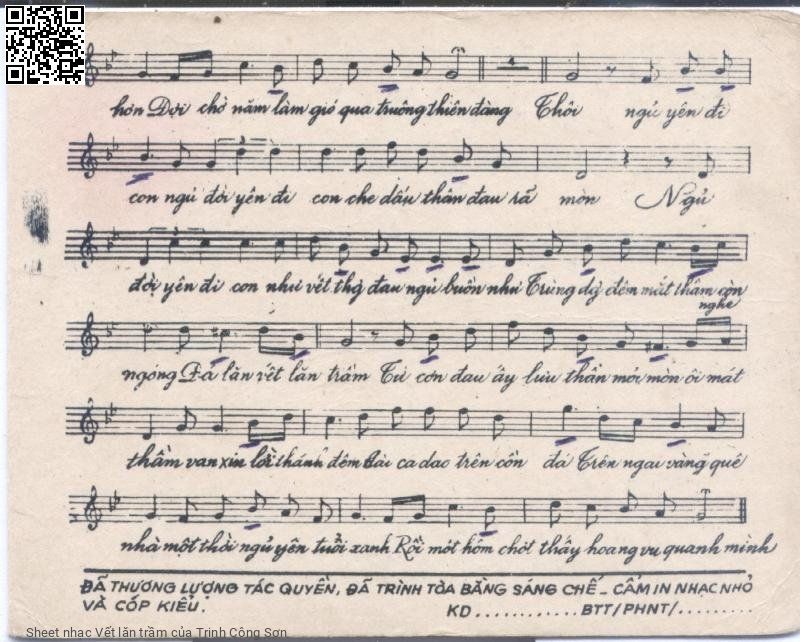 hơn Đợi chờ năm làm gió qua truông thiên đàng Thôi ngủ yên đi
con ngủ đời yên đi con che dấu thân đau rã mòn Ngủ
đời yên đi con như vết thơ đau ngủ buồn như Trùng dạ đêm mát thầm còn
nghe
ngóng Đá lăn vết lăn trầm Từ cơn đau ấy lưu thần mỏi mòn ôi mát
thầm van xin lời thánh đêm bài ca dao trên cồn đá Trên ngai vàng quê
nhà một thời ngủ yên tuổi xanh Rồi một hôm chợt thấy hoang vu quanh mình
ĐÃ THƯƠNG LƯỢNG TÁC QUYỀN, ĐÃ TRÌNH TÒA BẰNG SÁNG CHẾ - CẤM IN NHẠC NHỎ
VÀ CÓP KIỂU. KD............BTT/PHNT/.........
Sheet nhạc Vết lăn trầm của Trịnh Công Sơn